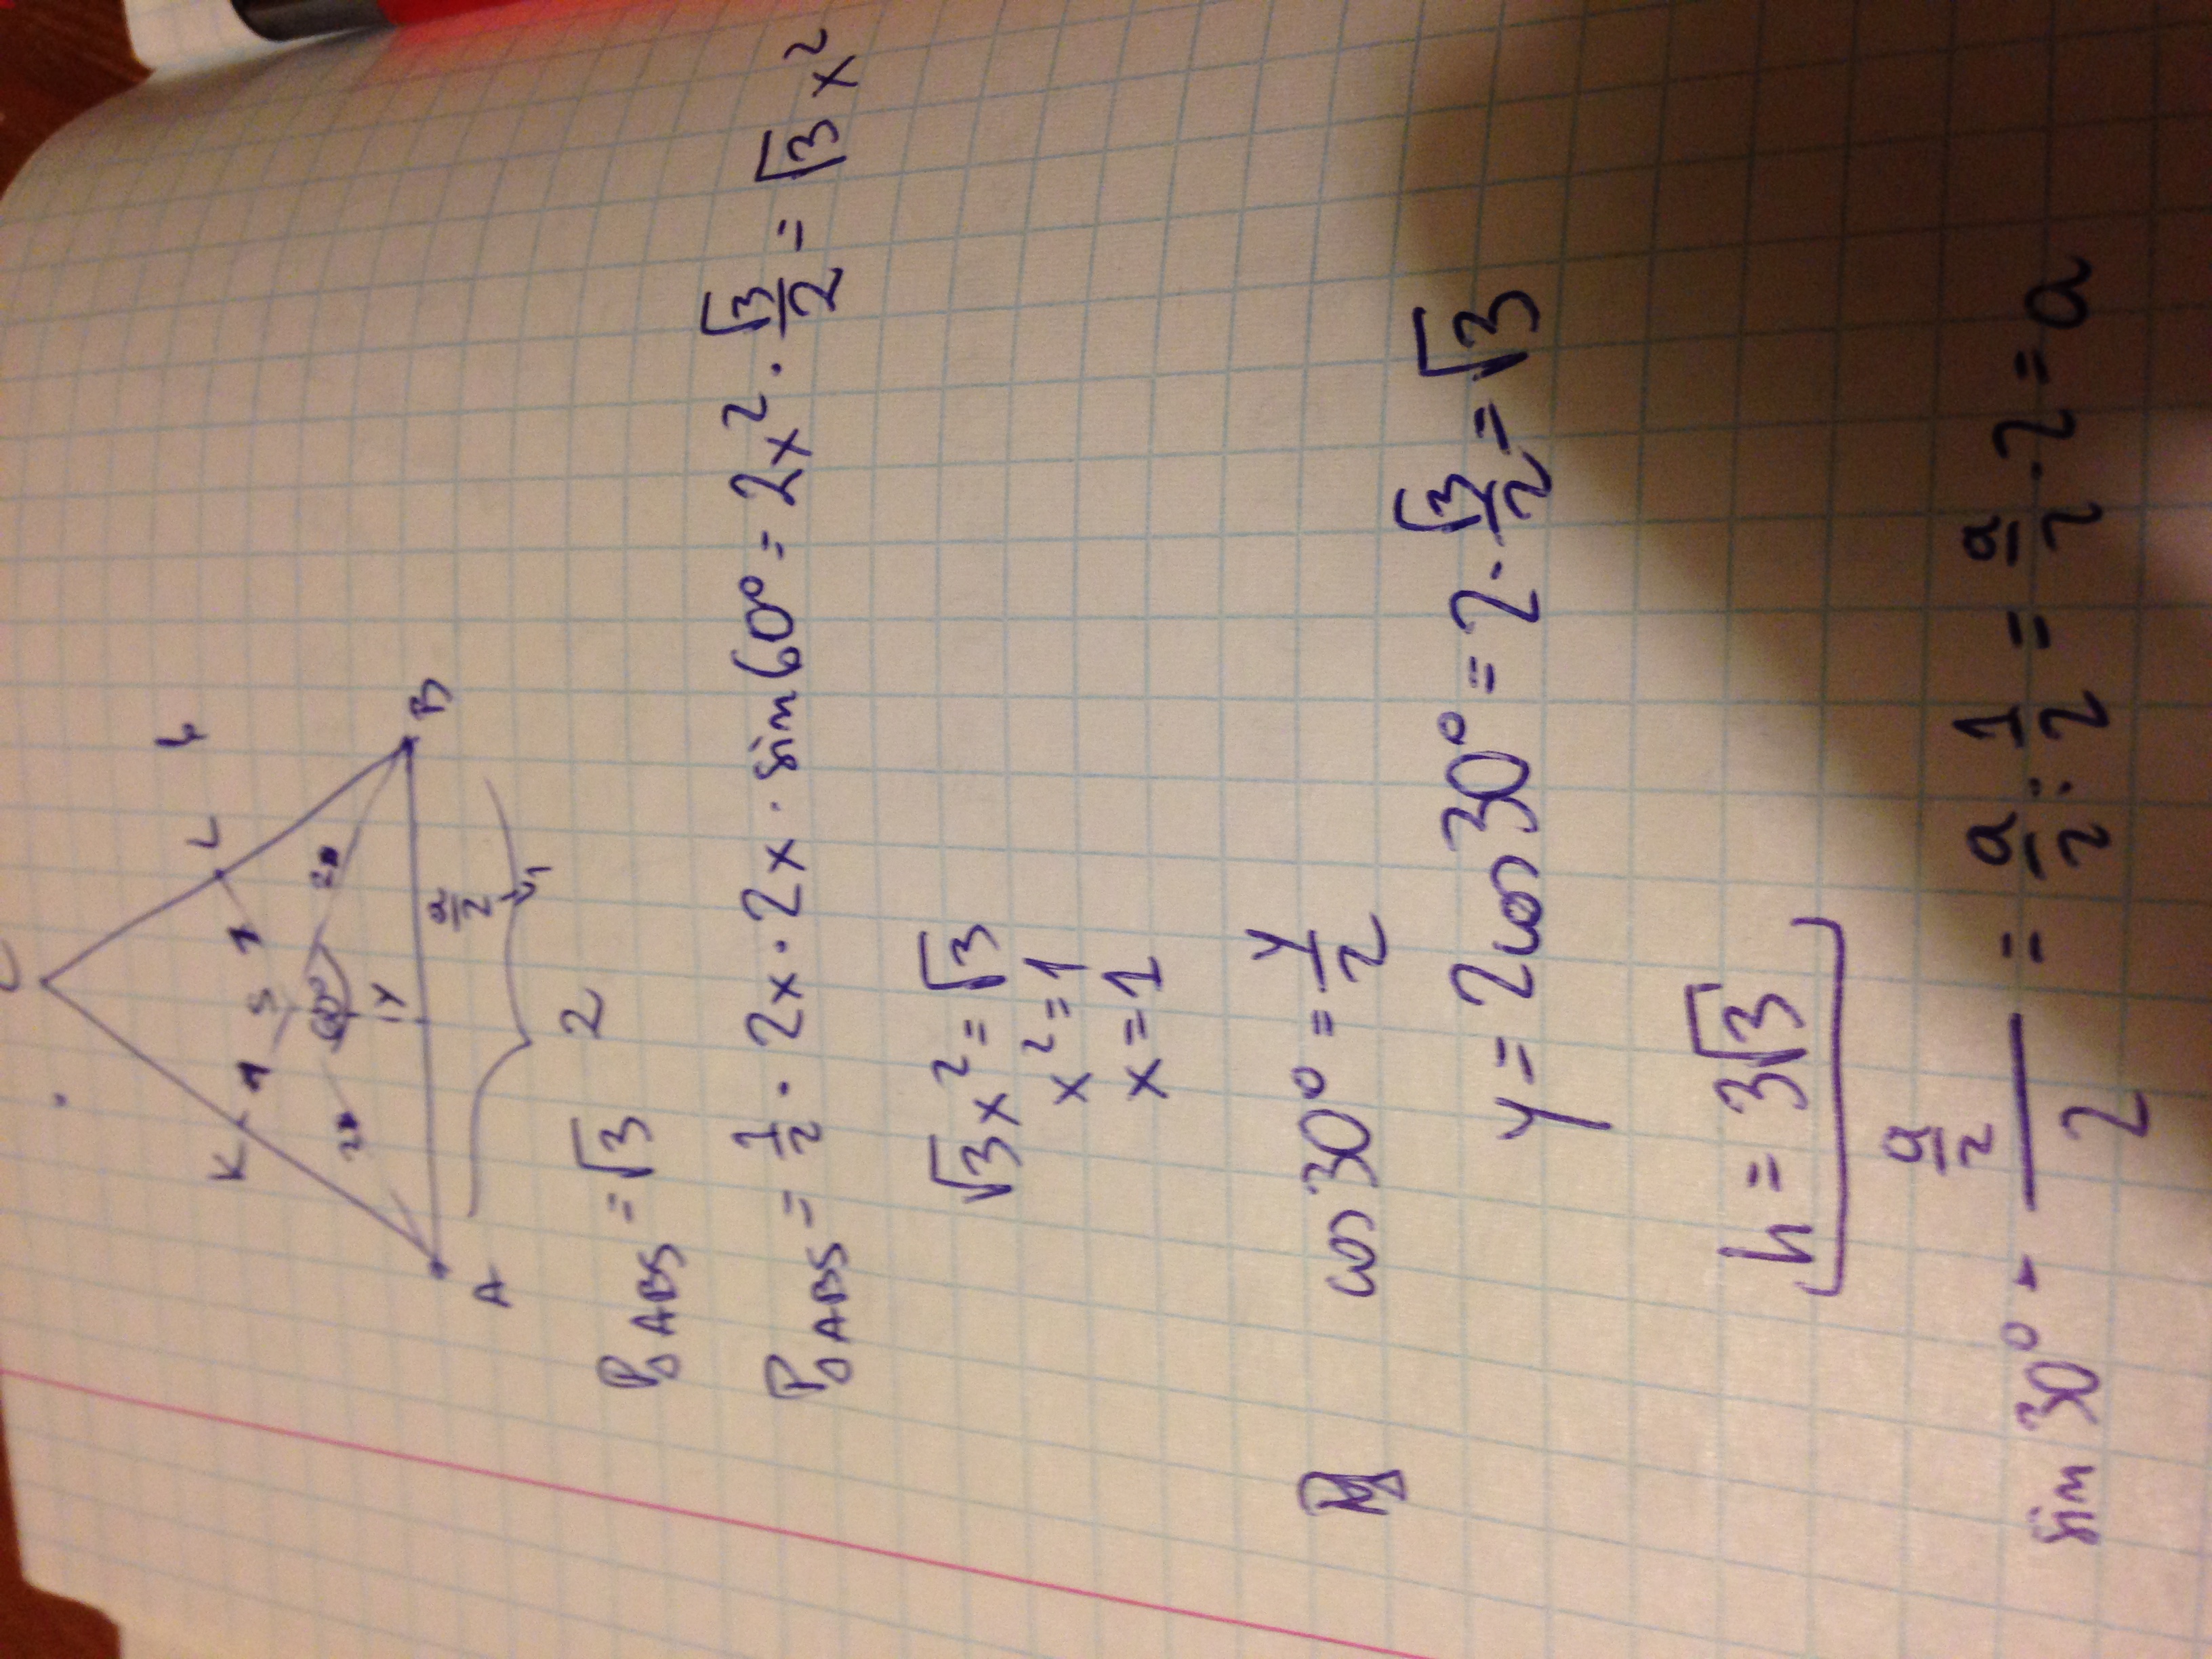 C
K 1 S 1 L b
2 60° 2
y
A B
a/2
1
2
P△ABS = √3
P△ABS = 1/2 · 2x · 2x · sin60° = 2x² · √3/2 = √3 x²
√3x² = √3
x² = 1
x = 1
cos30° = y/2
y = 2cos30° = 2 · √3/2 = √3
h = 3√3
sin 30° - (a/2)/2 = a/2 : 1/2 = a/2 · 2 = a